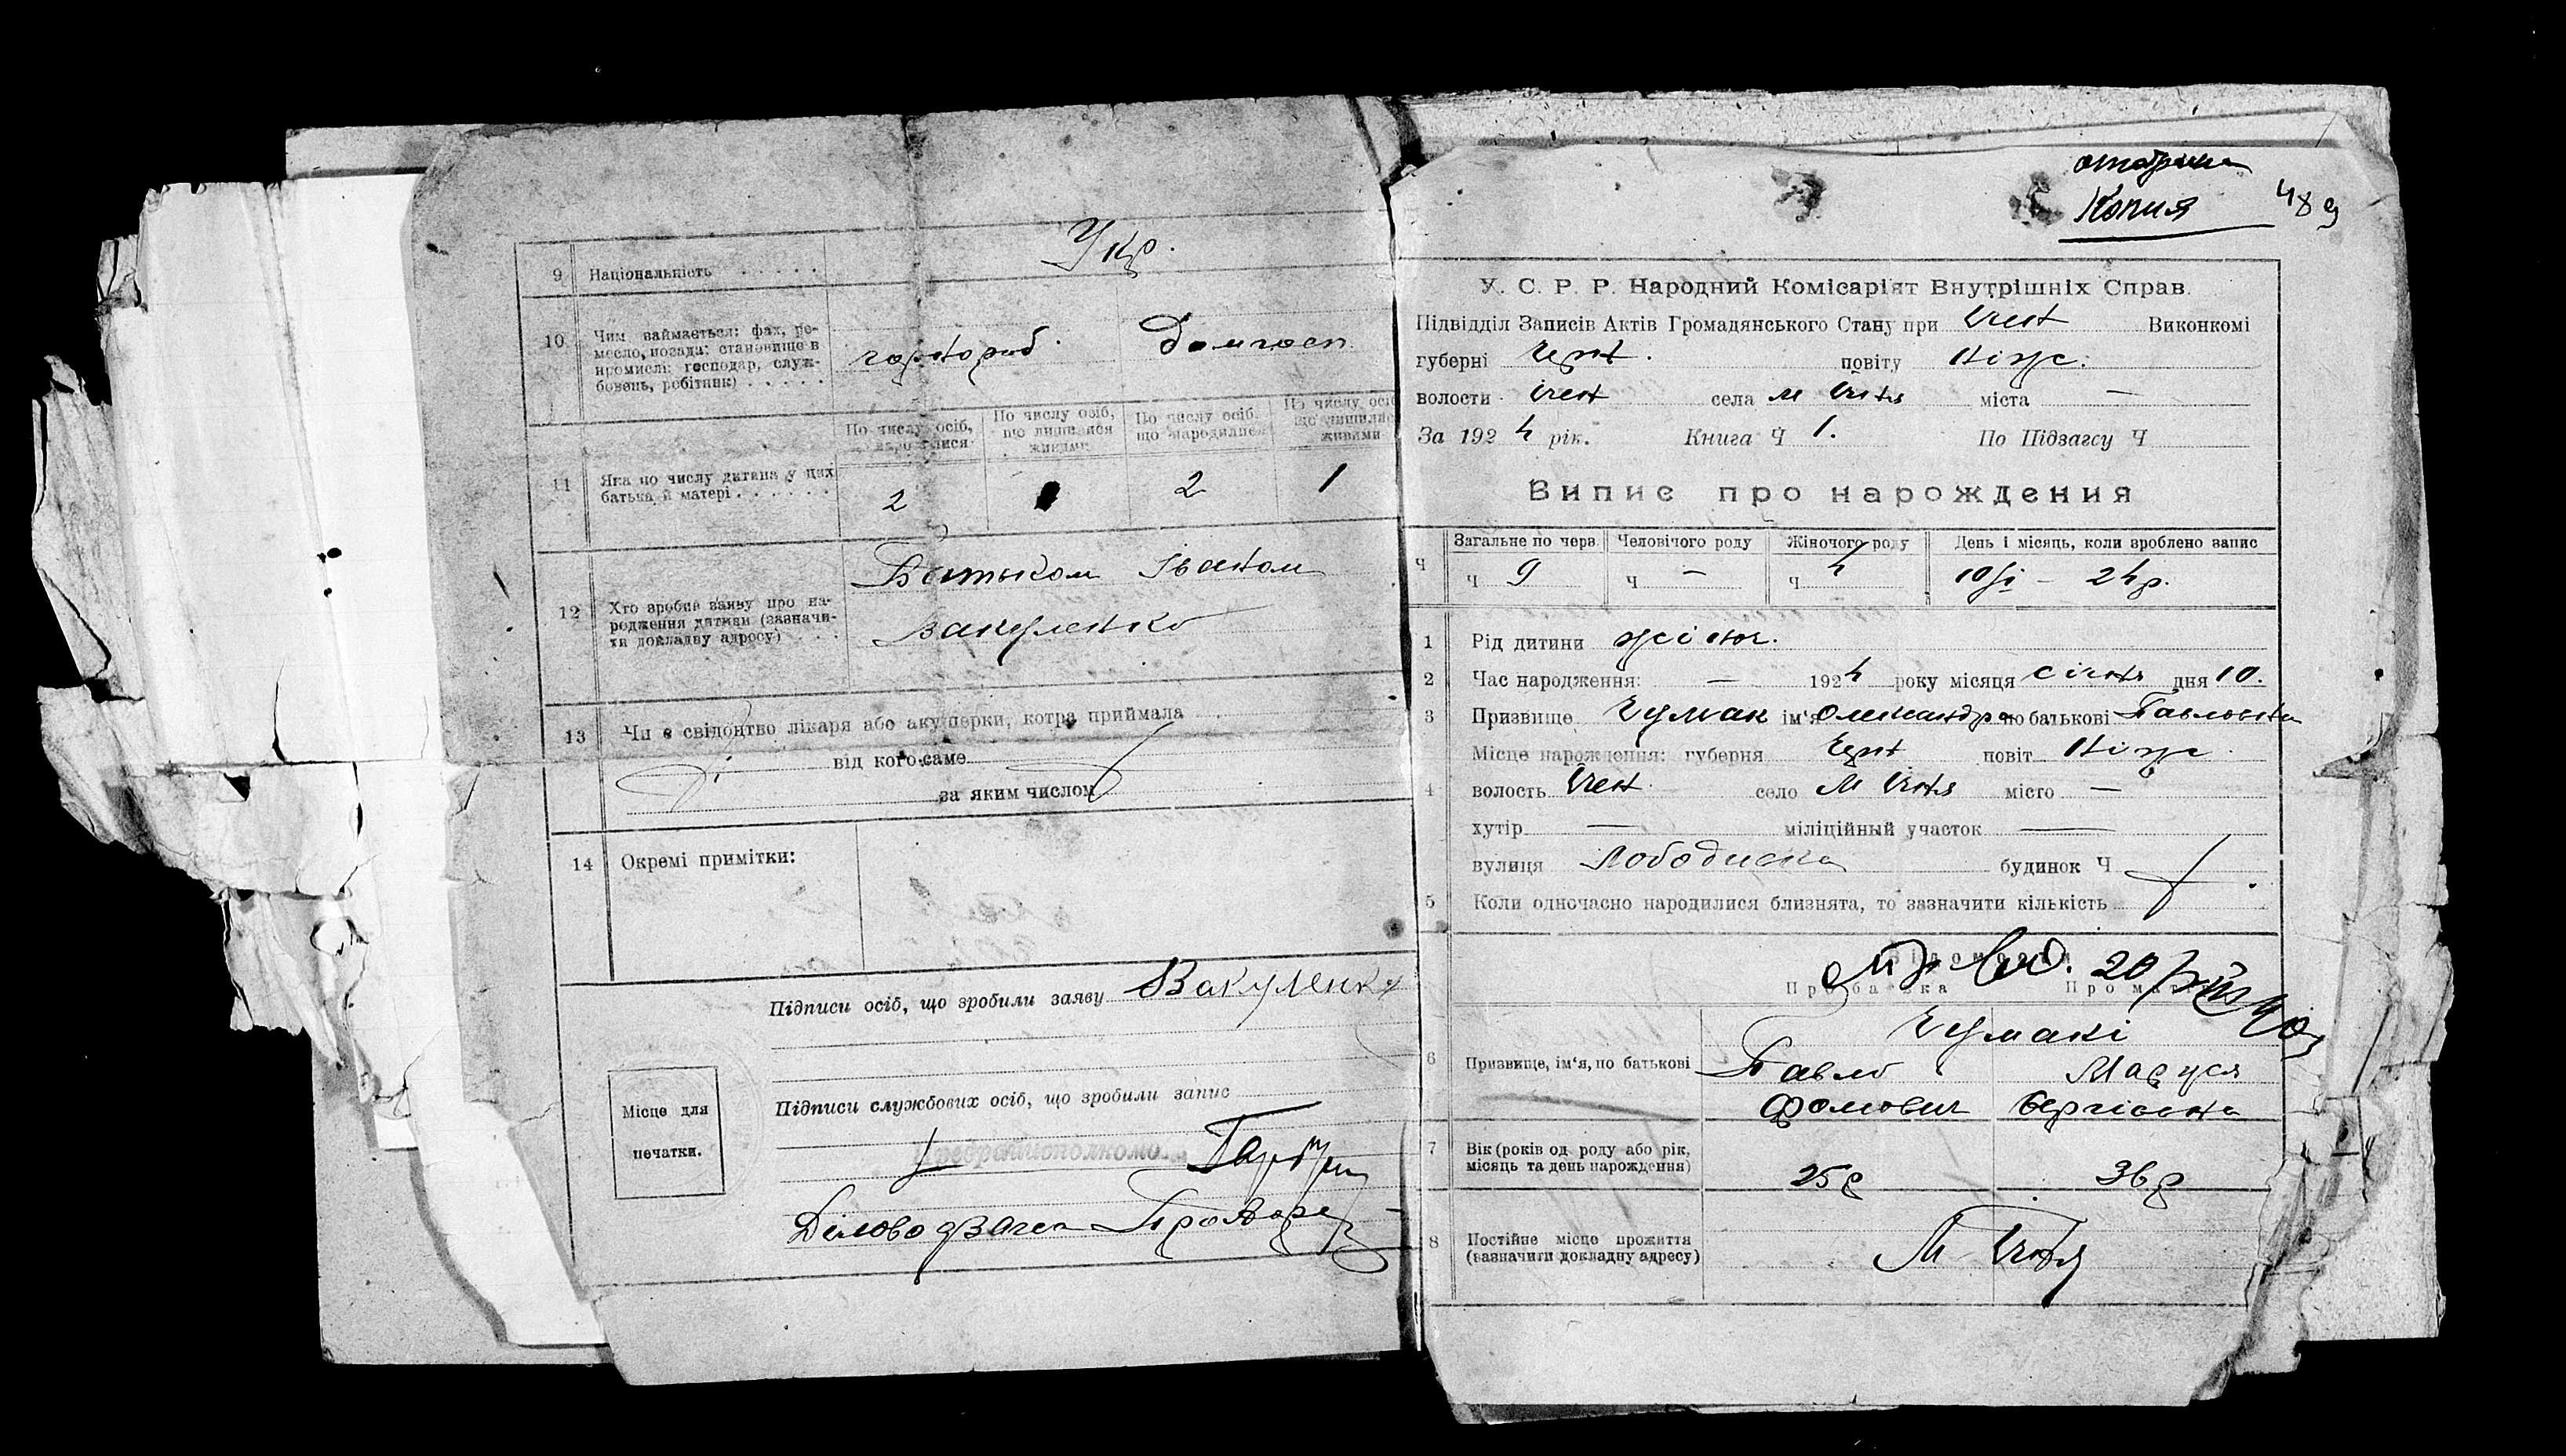 9 Національність . . . . . Укр.
10 Чим займається: фах, ре-
месло, посада: становище в
промислі: господар, служ-
бовець, робітник) . . . . .
Домгосп.
По числу осіб, що народилися
По числу осіб, що лишилися живими
По числу осіб, що народилися
По числу осіб, що лишилися живими
11 Яка по числу дитина у цих
батька й матері . . . . . .
2 2 1
12 Хто зробив заяву про на-
родження дитини (зазначи-
ти докладну адресу) . . .
Батьком Іваном
Вакуленко
13 Чи є свідоцтво лікаря або акушерки, котра приймала
від кого саме
за яким числом
14 Окремі примітки:
Підписи осіб, що зробили заяву Вакуленко
Підписи службових осіб, що зробили запис
Місце для
печатки.
Діловод
отобрана
Копия 489
У. С. Р. Р. Народний Комісаріят Внутрішніх Справ.
Підвідділ Записів Актів Громадянського Стану при Ічен Виконкомі
губерні Черн. повіту Ніжс.
волости Ічен села м Ічня міста —
За 1924 рік. Книга Ч 1. По Підзагсу Ч
Випис про нарождения
Ч Загальне по черв. Человічого роду Жіночого роду День і місяць, коли зроблено запис
ч 9 ч — ч 4 10/I — 24р.
1 Рід дитини жіноч.
2 Час народження: — 1924 року місяця січня дня 10.
3 Призвище Чумак ім'я Олександра по батькові Павловна
Місце нарождення: губерня Черн повіт Ніжс.
4 волость Ічен село М Ічня місто —
хутір — міліційный участок —
вулиця Лободиска будинок Ч
5 Коли одночасно народилися близнята, то зазначити кількість
Відомости
Про батька Про матір
Чумакі
6 Призвище, ім'я, по батькові Павло Маруся
Фомович Сергіевна
7 Вік (років од роду або рік,
місяць та день нарождення)
25р 36р
8 Постійне місце прожиття
(зазначити докладну адресу)
М Ічня